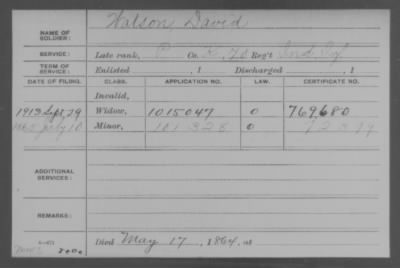 NAME OF SOLDIER: Watson, David
SERVICE: Late rank, P Co. K, 70 Reg't Ind. Inf.
TERM OF SERVICE: Enlisted , 1 Discharged , 1
DATE OF FILING. CLASS. APPLICATION NO. LAW. CERTIFICATE NO.
Invalid,
1913 Sept 29 Widow, 1015047 0 769,680
July 10 Minor, 101 328 0
ADDITIONAL SERVICES:
REMARKS:
Died May 17, 1864, at